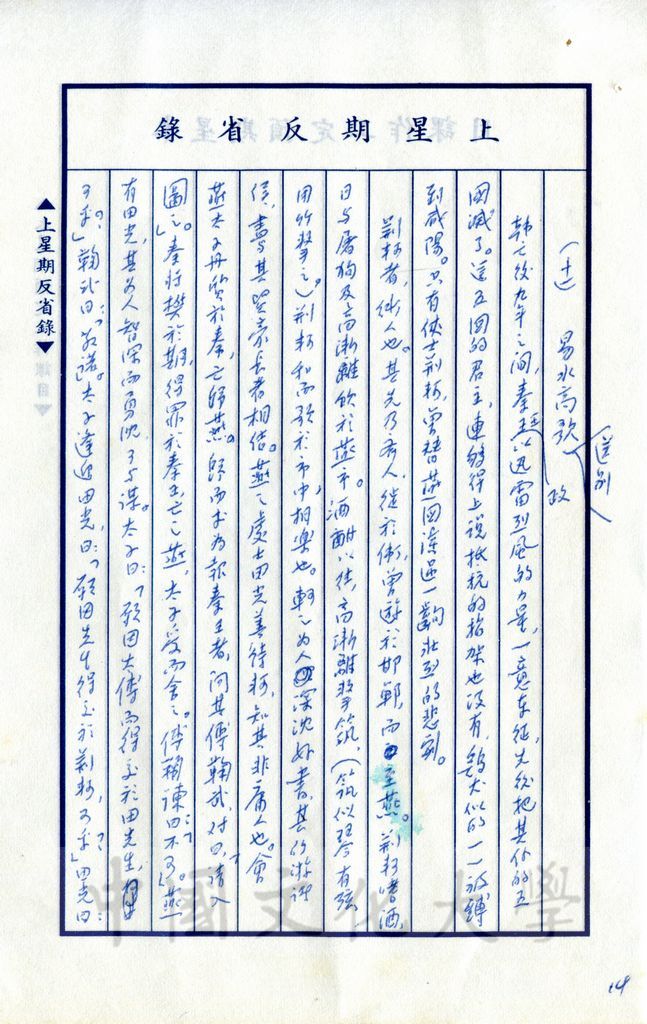 上星期反省錄
（十一） 易水高歌 送別
韓亡後九年之間，秦王政以迅雷烈風的力量，一意東征，先後把其他的五
國滅了。這五國的君主，連夠得上說抵抗的招架也沒有，鷄犬似的一一被縛
到咸陽。只有俠士荊軻，曾替燕國演過一齣壯烈的悲劇。
荊軻者，衛人也。其先乃齊人，徙於衛，曾遊於邯鄲，而至燕。荊軻嗜酒，
日與屠狗及高漸離飲於燕市。酒酣以往，高漸離擊筑，（筑似琴有弦，
用竹擊之）荊軻和而歌於市中，相樂也。軻之為人深沈好書，其所遊諸
侯，盡與其賢豪長者相結。燕之處士田光善待軻，知其非庸人也。會
燕太子丹質於秦，亡歸燕。歸而求為報秦王者，問其傅鞠武，對曰，請入
圖之。秦將樊於期，得罪於秦王，亡之燕，太子受而舍之。傅鞠諫曰：「不可」。燕
有田光，其為人智深而勇沈，可與謀。太子曰：「願因太傅而得交於田先生，
可乎？」鞠武曰：「敬諾。太子逢迎田光，曰：「願因先生得交於荊軻，可乎？」田光曰：
▲上星期反省錄▼
中國文化大學
14